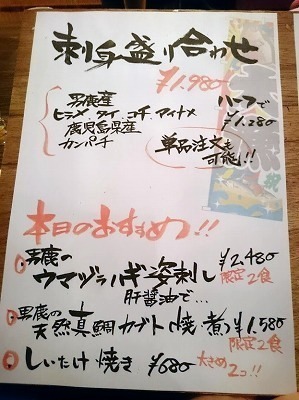 刺身盛り合わせ
¥1,980
男鹿産
ヒラメ、タイ、コチ、マイナメ
鹿児島県産
カンパチ
ハーフで
¥1,280
単品注文も
可能!!
本日のおすすめ!!
男鹿の
ウマヅラハギ姿刺し ¥2,480
肝醤油で… 限定2食
男鹿の
天然真鯛カブト(焼・煮) ¥1,580
限定2食
しいたけ焼き ¥680 大きめ
2コ!!